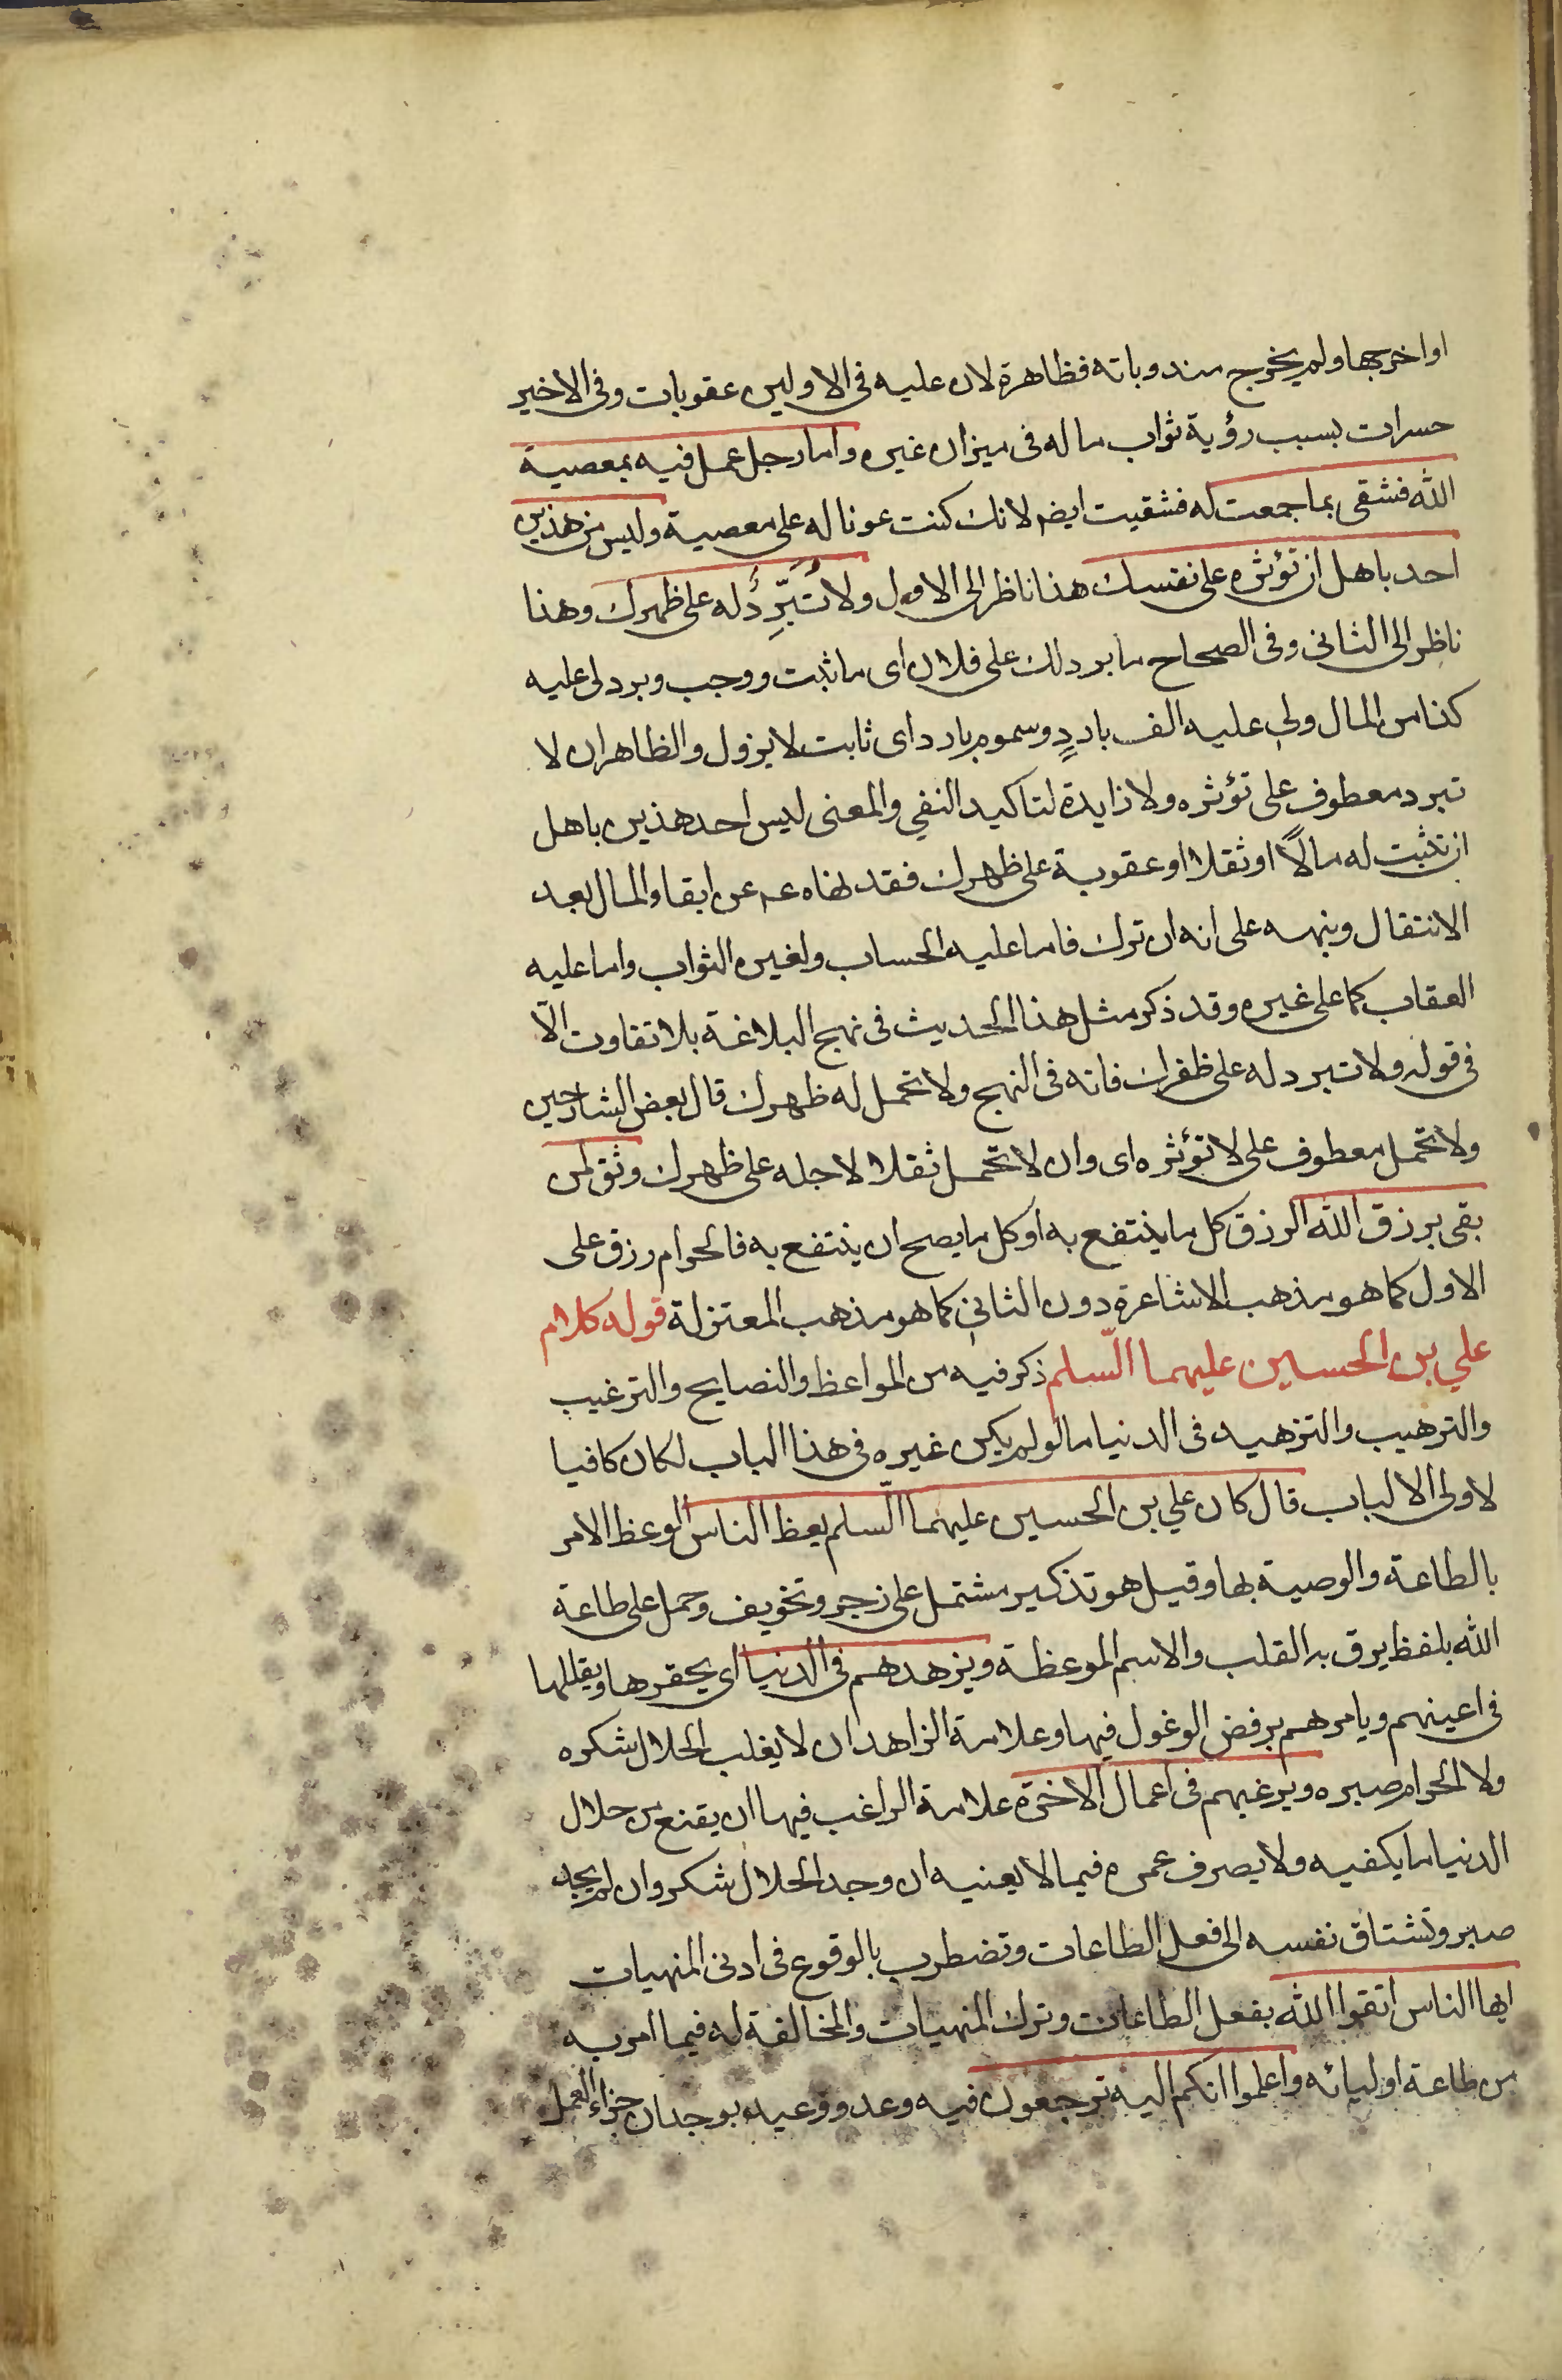 او اخرجها ولم يخرج مندوباته فظاهرة لان عليه فى الاولين عقوبات وفى الاخير
حسرات بسبب رؤية ثواب ماله فى ميزان غيره واما رجل عمل فيه بمعصية
الله فشقى بما جمعت له فشقيت ايضا لانك كنت عونا له على معصية وليس من هذين
احد باهل ان تؤثره على نفسك هذا ناظر الى الاول ولا تُبَرِّدَ له على ظهرك وهذا
ناظر الى الثانى وفى الصحاح ما برد لك على فلان اى ما ثبت ووجب وبرد لى عليه
كذا من المال ولى عليه الف باردٍ وسموم بارد اى ثابت لا يزول والظاهر ان لا
تبرد معطوف على تؤثره ولا زايدة لتاكيد النفي والمعنى ليس احد هذين باهل
ان تثبت له مالاً او ثقلا او عقوبة على ظهرك فقد نهاه عم عن ابقاء المال بعد
الانتقال ونبهه على انه ان ترك فاما عليه الحساب ولغيره الثواب واما عليه
العقاب كما على غيره وقد ذكر مثل هذا الحديث فى نهج البلاغة بلا تفاوت الّا
فى قوله ولا تبرد له على ظهرك فانه فى النهج ولا تحمل له ظهرك قال بعض الشارحين
ولا تحمل معطوف على لا تؤثره اى وان لا تحمل ثقلا لاجله على ظهرك وثق لمن
بقى برزق الله الرزق كل ما ينتفع به او كل ما يصح ان ينتفع به فالحرام رزق على
الاول كما هو مذهب الاشاعرة دون الثانى كما هو مذهب المعتزلة قوله كلام
علي بن الحسين عليهما السّلم ذكر فيه من المواعظ والنصايح والترغيب
والترهيب والتزهيد فى الدنيا ما لو لم يكن غيره فى هذا الباب لكان كافيا
لاولى الالباب قال كان علي بن الحسين عليهما السّلم يعظ الناس الوعظ الامر
بالطاعة والوصية بها وقيل هو تذكير مشتمل على زجر وتخويف وحمل على طاعة
الله بلفظ يرق به القلب والاسم الموعظة ويزهدهم فى الدنيا اى يحقرها ويقللها
فى اعينهم ويامرهم برفض الوغول فيها وعلامة الزاهد ان لا يغلب الحلال شكره
ولا الحرام صبره ويرغبهم فى اعمال الاخرة علامة الراغب فيها ان يقنع من حلال
الدنيا ما يكفيه ولا يصرف عمره فيما لا يعنيه ان وجد الحلال شكر وان لم يجد
صبر وتشتاق نفسه الى فعل الطاعات وتضطرب بالوقوع فى ادنى المنهيات
ايها الناس اتقوا الله بفعل الطاعات وترك المنهيات والمخالفة له فيما امر به
من طاعة اوليائه واعلموا انكم اليه ترجعون فيه وعد ووعيد بوجدان جزاء العمل